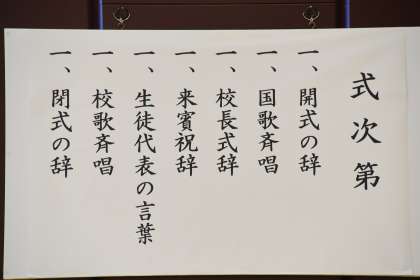 式次第
一、開式の辞
一、国歌斉唱
一、校長式辞
一、来賓祝辞
一、生徒代表の言葉
一、校歌斉唱
一、閉式の辞